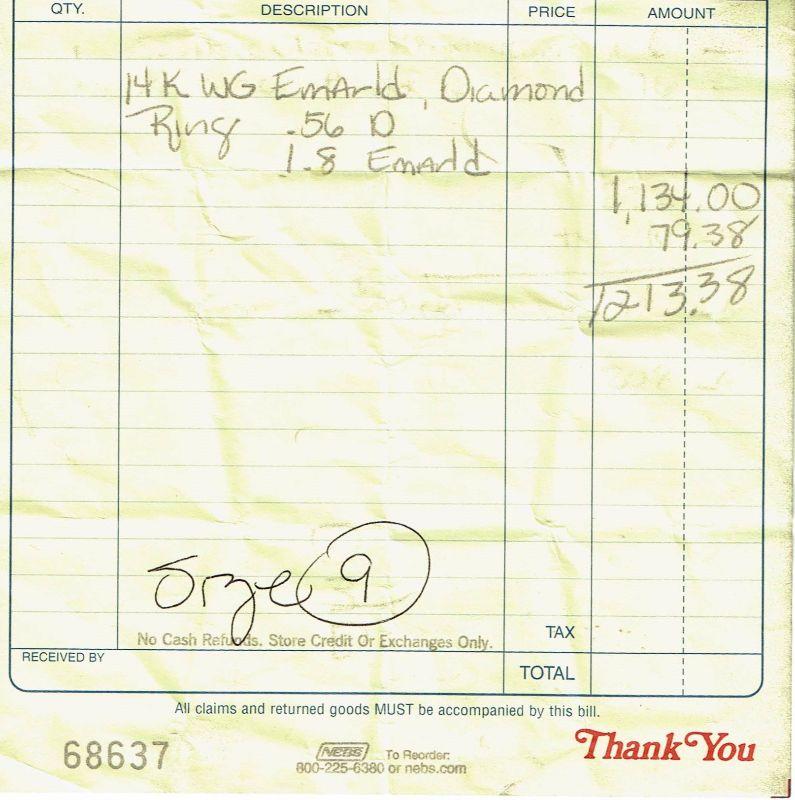 QTY. DESCRIPTION PRICE AMOUNT
14K WG Emarld, Diamond
Ring .56 D
1.8 Emarld
1,134.00
79.38
1213.38
Size 9
No Cash Refunds. Store Credit Or Exchanges Only.
TAX
RECEIVED BY
TOTAL
All claims and returned goods MUST be accompanied by this bill.
68637
NEBS To Reorder:
800-225-6380 or nebs.com
Thank You